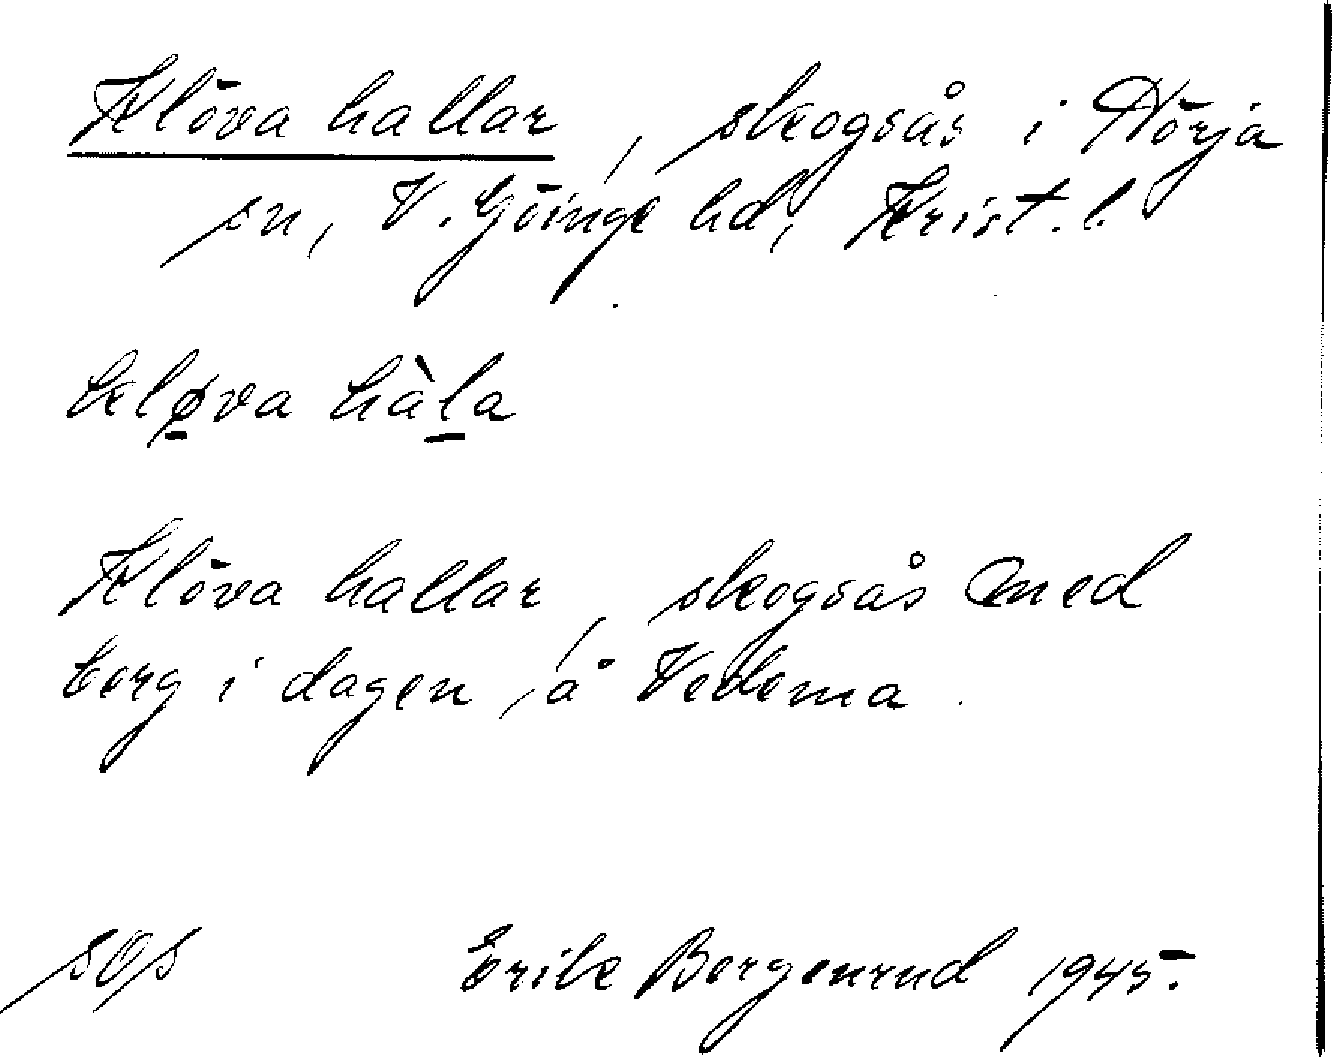 Klöva hallar, skogsås i Nörja
sn, V. Göinge hd, Krist. l.
kløva hàla
Klöva hallar, skogsås med
berg i dagen, å Vedema.
Erik Bergenrud 1945.